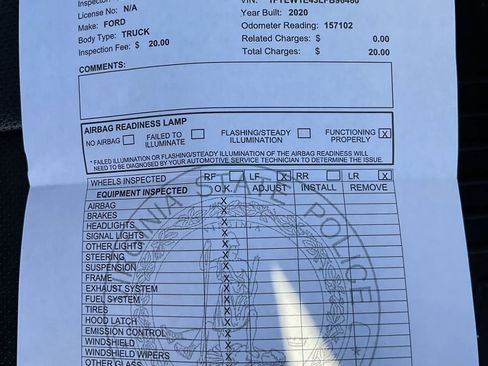 Inspector
License No: N/A
Make: FORD
Body Type: TRUCK
Inspection Fee: $ 20.00
VIN:
Year Built: 2020
Odometer Reading: 157102
Related Charges: $ 0.00
Total Charges: 20.00
COMMENTS:
AIRBAG READINESS LAMP
NO AIRBAG FAILED TO ILLUMINATE FLASHING/STEADY ILLUMINATION FUNCTIONING PROPERLY X
* FAILED ILLUMINATION OR FLASHING/STEADY ILLUMINATION OF THE AIRBAG READINESS WILL
NEED TO BE DIAGNOSED BY YOUR AUTOMOTIVE SERVICE TECHNICIAN TO DETERMINE THE ISSUE.
WHEELS INSPECTED RF LF X RR LR X
EQUIPMENT INSPECTED O.K. ADJUST INSTALL REMOVE
AIRBAG X
BRAKES X
HEADLIGHTS X
SIGNAL LIGHTS X
OTHER LIGHTS X
STEERING X
SUSPENSION X
FRAME X
EXHAUST SYSTEM X
FUEL SYSTEM X
TIRES X
HOOD LATCH X
EMISSION CONTROL X
WINDSHIELD X
WINDSHIELD WIPERS X
OTHER GLASS X
VIRGINIA STATE POLICE